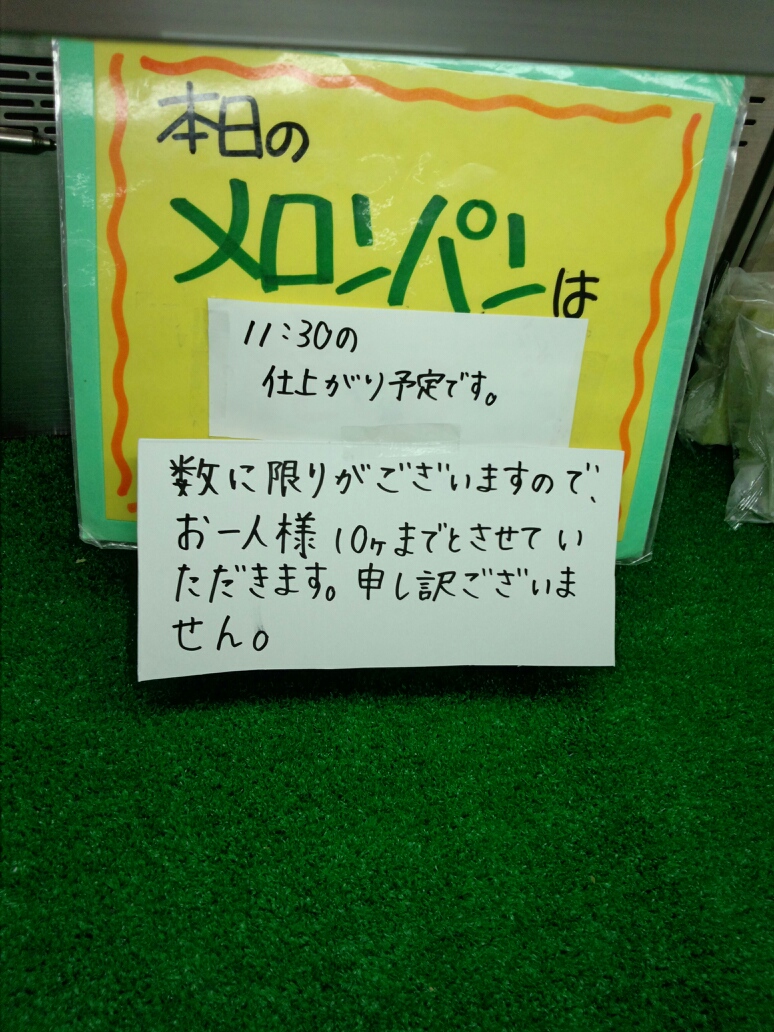 本日の
メロンパンは
11:30の
仕上がり予定です。
数に限りがございますので、
お一人様10ヶまでとさせてい
ただきます。申し訳ございま
せん。